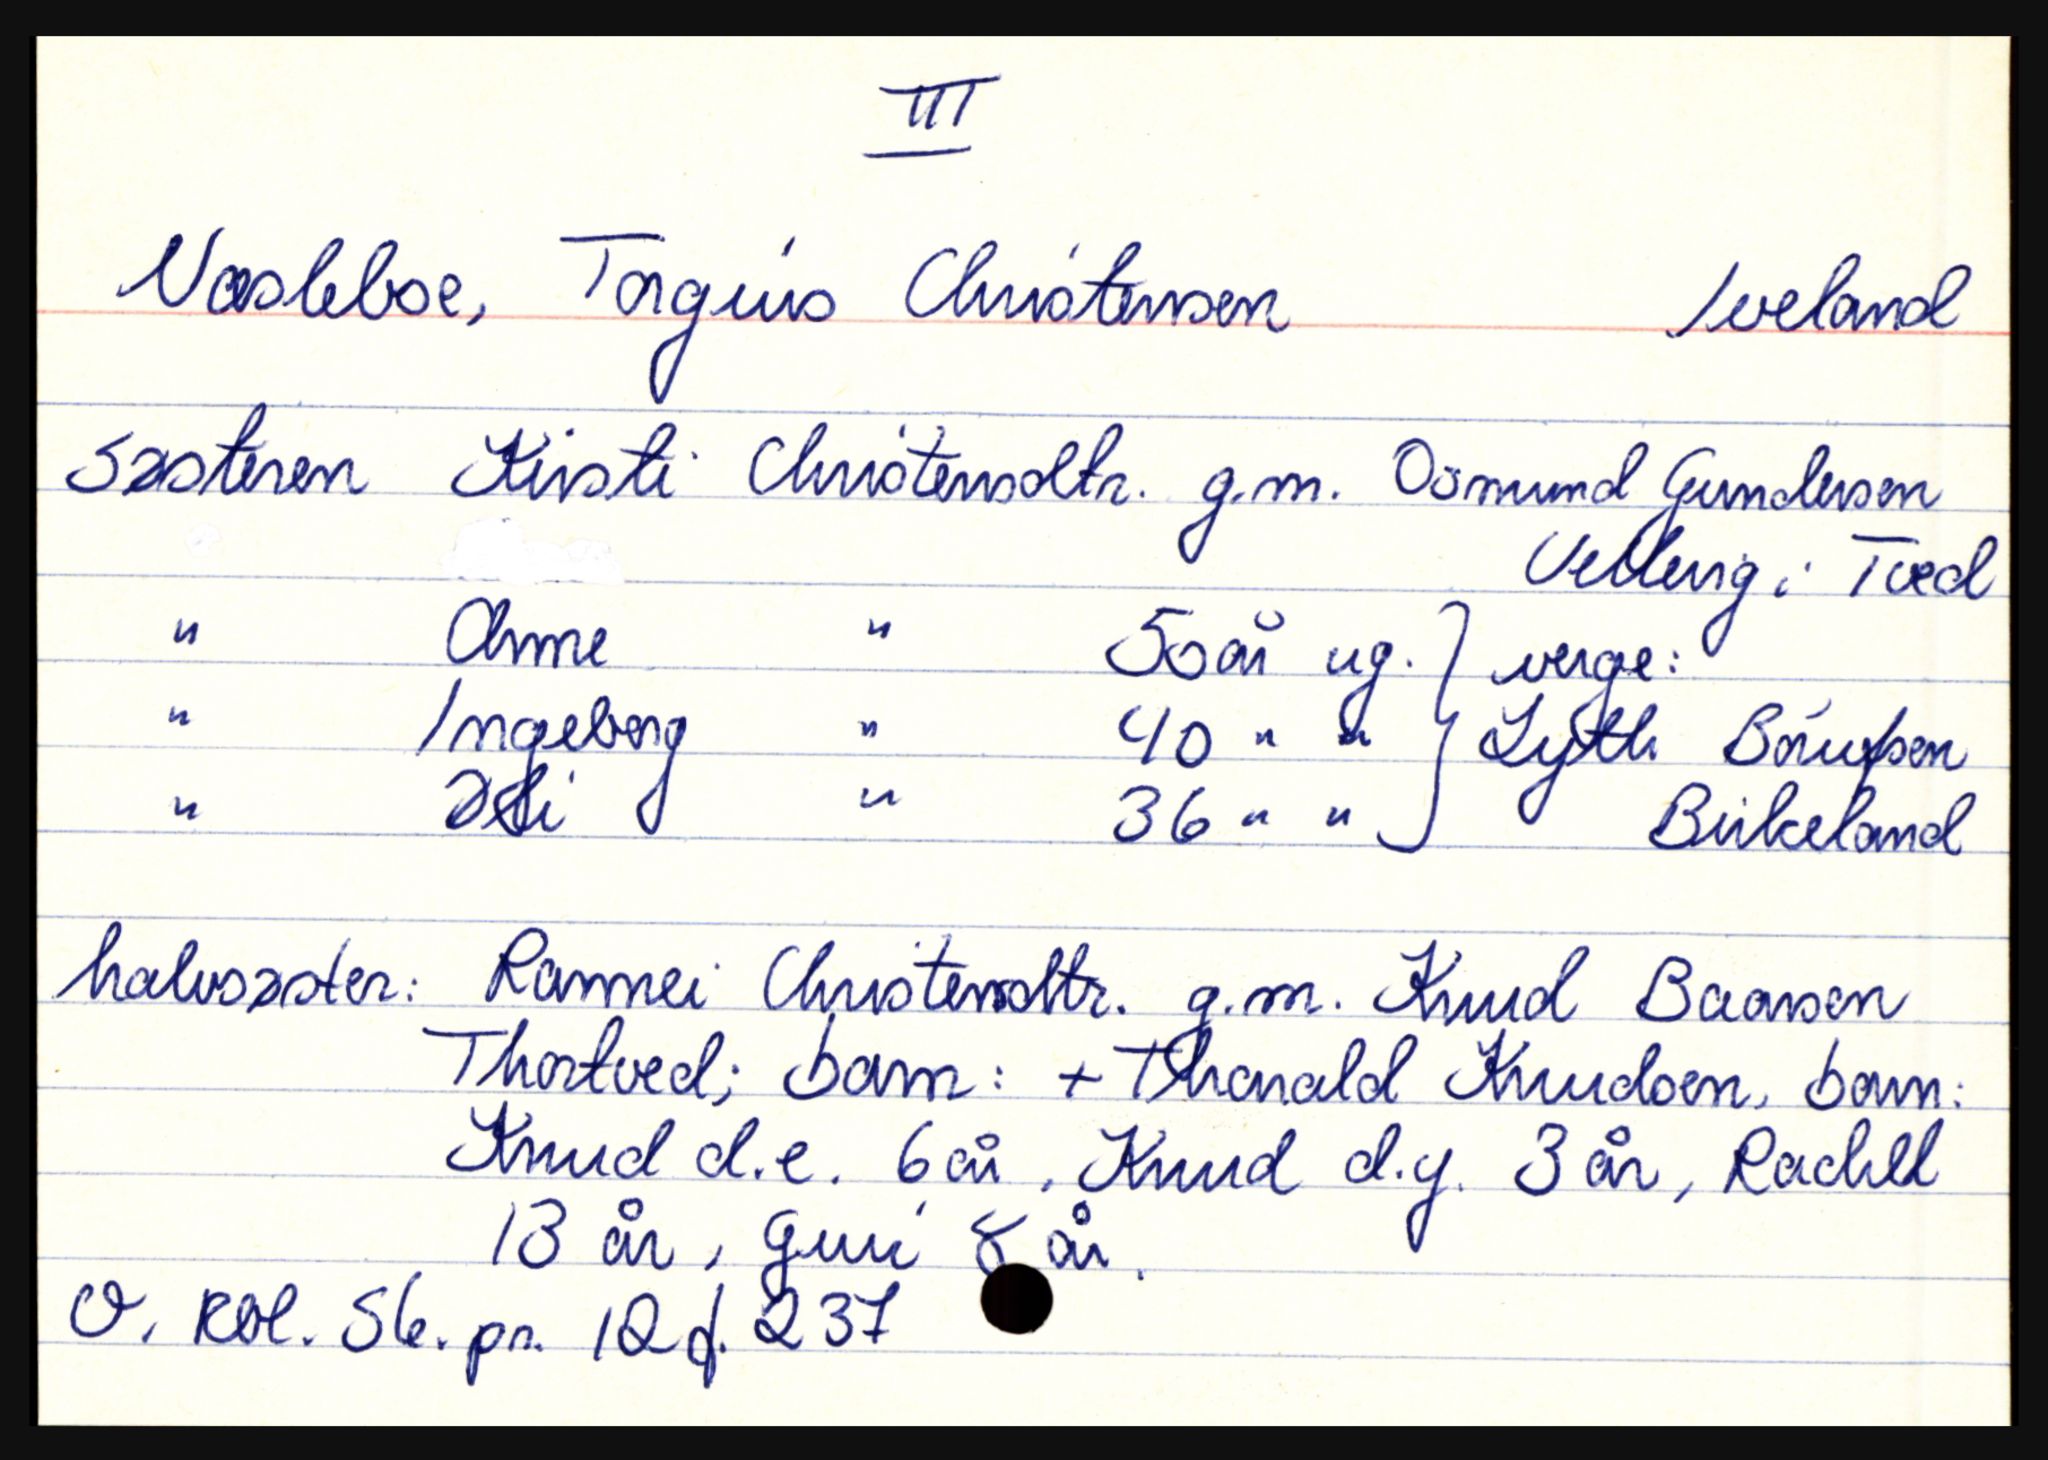 III
Næsleboe, Torgius Christensen Iveland
Søsteren Kirsti Christensdtr. g.m. Osmund Gundersen
Velleng i Tved
" Anne " 50 år ug. } verge:
" Ingeborg " 40 " " } Lyth Börufsen
" Østi " 36 " " } Birkeland
halvsøster: Rannei Christensdtr. g.m. Knud Baarsen
Thortved; barn: + Tharald Knudsen, barn:
Knud d.e. 6 år, Knud d.y. 3 år, Rachel
13 år, Guri 8 år.
O. Rbl. Sk. pr. 12 f. 237